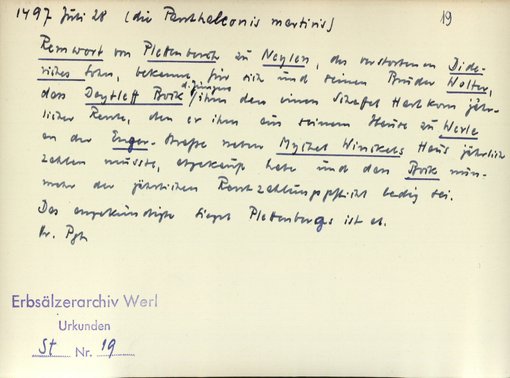 1497 Juli 28 (die Panthaleonis martiris) 19
Remwort von Plettenbracht zu Neylen, des verstorbenen Dide-
riches Sohn, bekennt, für sich und seinen Bruder Wolter,
dass Deytleff Bock d. Jüngere ihm den einen Scheffel Hartkorn jähr-
licher Rente, den er ihm aus seinem Hause zu Werle
an der Enger-Straße neben Mychel Winikels Haus jährlich
zahlen musste, abgekauft habe und dass Bock nun-
mehr der jährlichen Rentzahlungspflicht ledig sei.
Das angekündigte Siegel Plettenbergs ist ab.
Or. Pgt.
Erbsälzerarchiv Werl
Urkunden
St Nr. 19